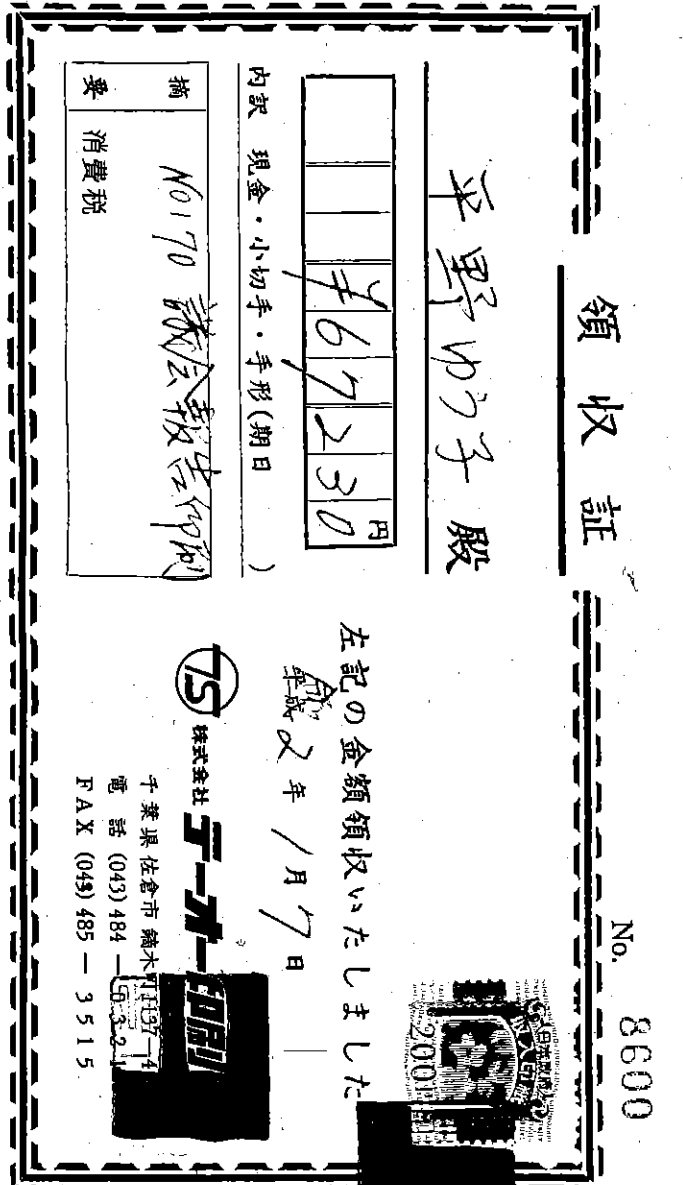 領収証
No. 8600
平野ゆう子 殿
¥67230円
内訳 現金・小切手・手形(期日 )
摘要 NO170 議会報告印刷
消費税
左記の金額領収いたしました
令和
平成 2年 1月 7日
日本政府
200
TS 株式会社 テーオー印刷
千葉県佐倉市鏑木町1137―4
電話 (043)484―0321
FAX (043)485―3515